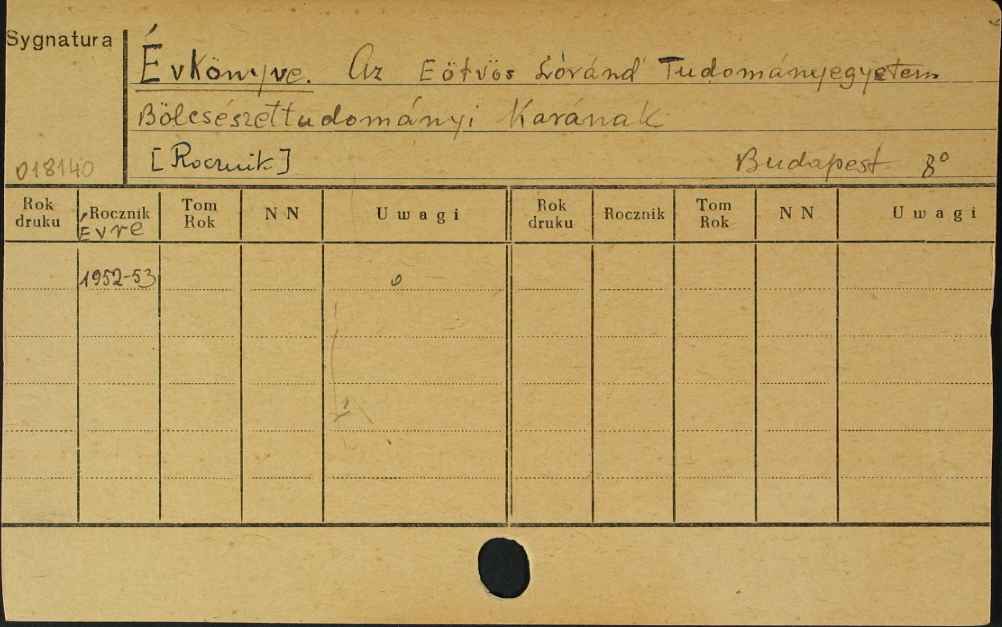 Sygnatura
Évkönyve. Az Eötvös Loránd Tudományegyetem
Bölcsészettudományi Karának
018140 [Rocznik] Budapest 8°
Rok druku Rocznik Tom Rok NN Uwagi Rok druku Rocznik Tom Rok NN Uwagi
Évre
1952-53 o